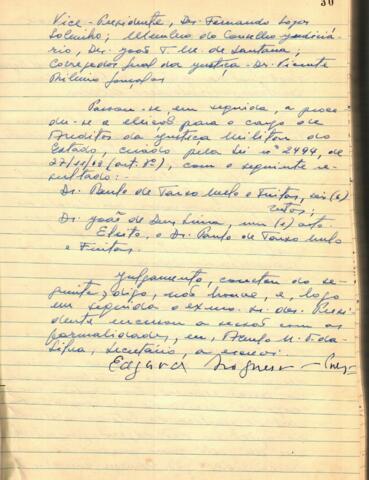 30
Vice-Presidente, Des. Fernando
Membro do Conselho Judiciá-
rio, Des. João T. M. de Santana;
Corregedor Geral da Justiça - Dr. Vicente
Passou-se, em seguida, a proce-
der-se a eleição para o cargo de
Auditor da Justiça Militar do
Estado, criado pela Lei nº 2444, de
(art. 8º), com o seguinte re-
sultado:-
Dr. Paulo de Tarso Melo e Freitas, seis (6)
votos;
Dr. João de Deus um (1) voto.
Eleito, o Dr. Paulo de Tarso Melo
e Freitas.
Julgamento, constou do se-
guinte, digo, não houve, e, logo
em seguida o exmo. sr. des. Presi-
dente encerrou a sessão com as
formalidades, eu,
Silva, secretário, a escrevi.
Edgard Nogueira - Pres.